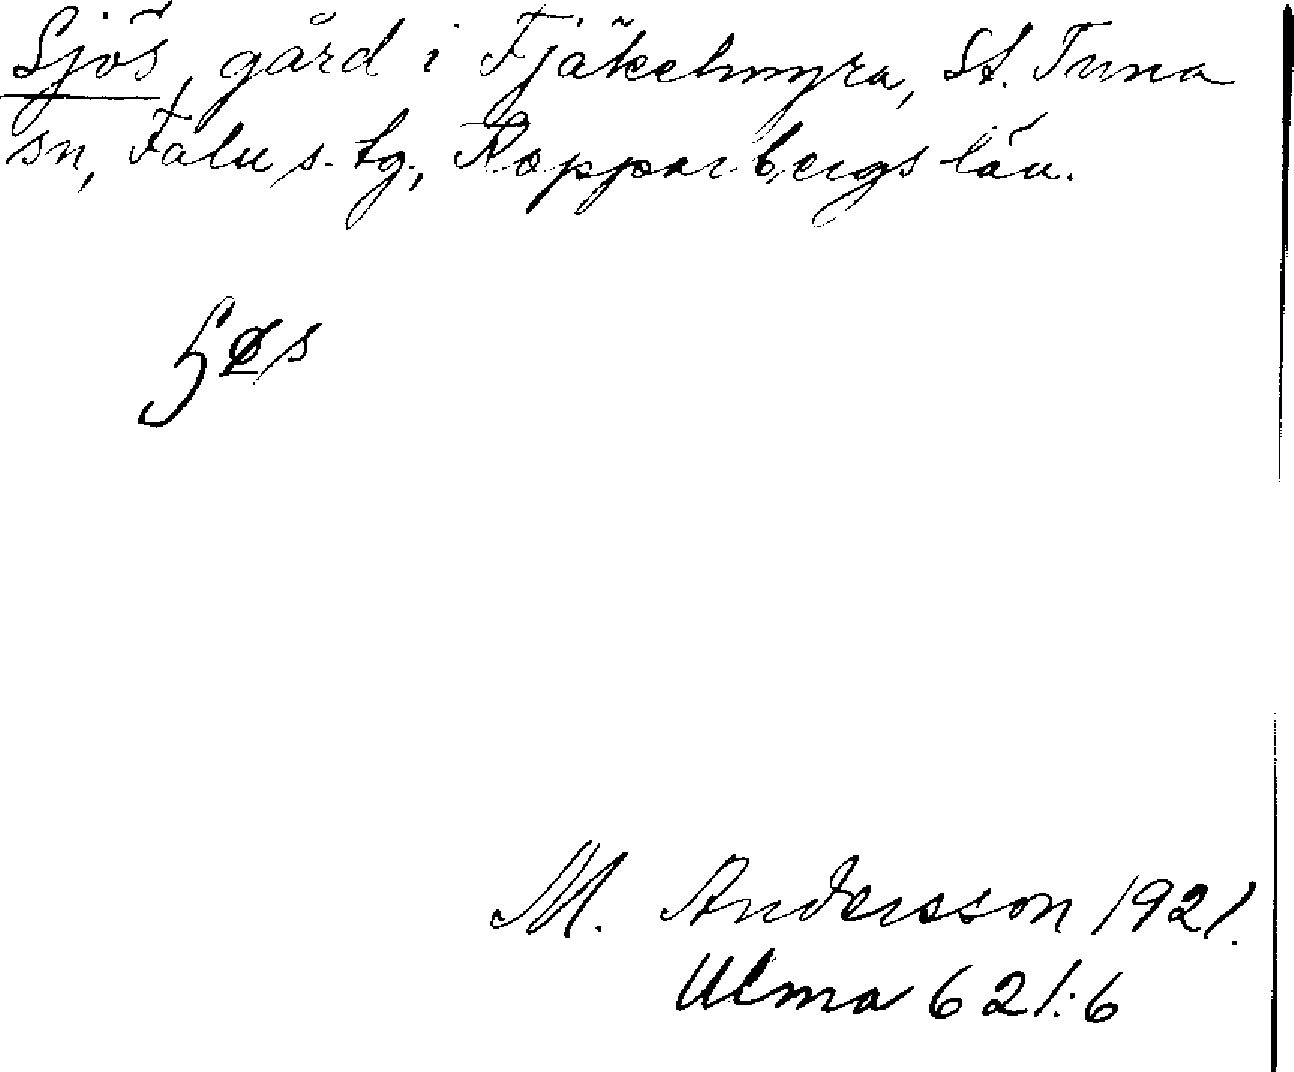 Sjös, gård i Fjäkelmyra, St. Tuna
sn, Falu s. tg., Kopparbergs län.
M. Andersson 1921.
Ulma 621:6